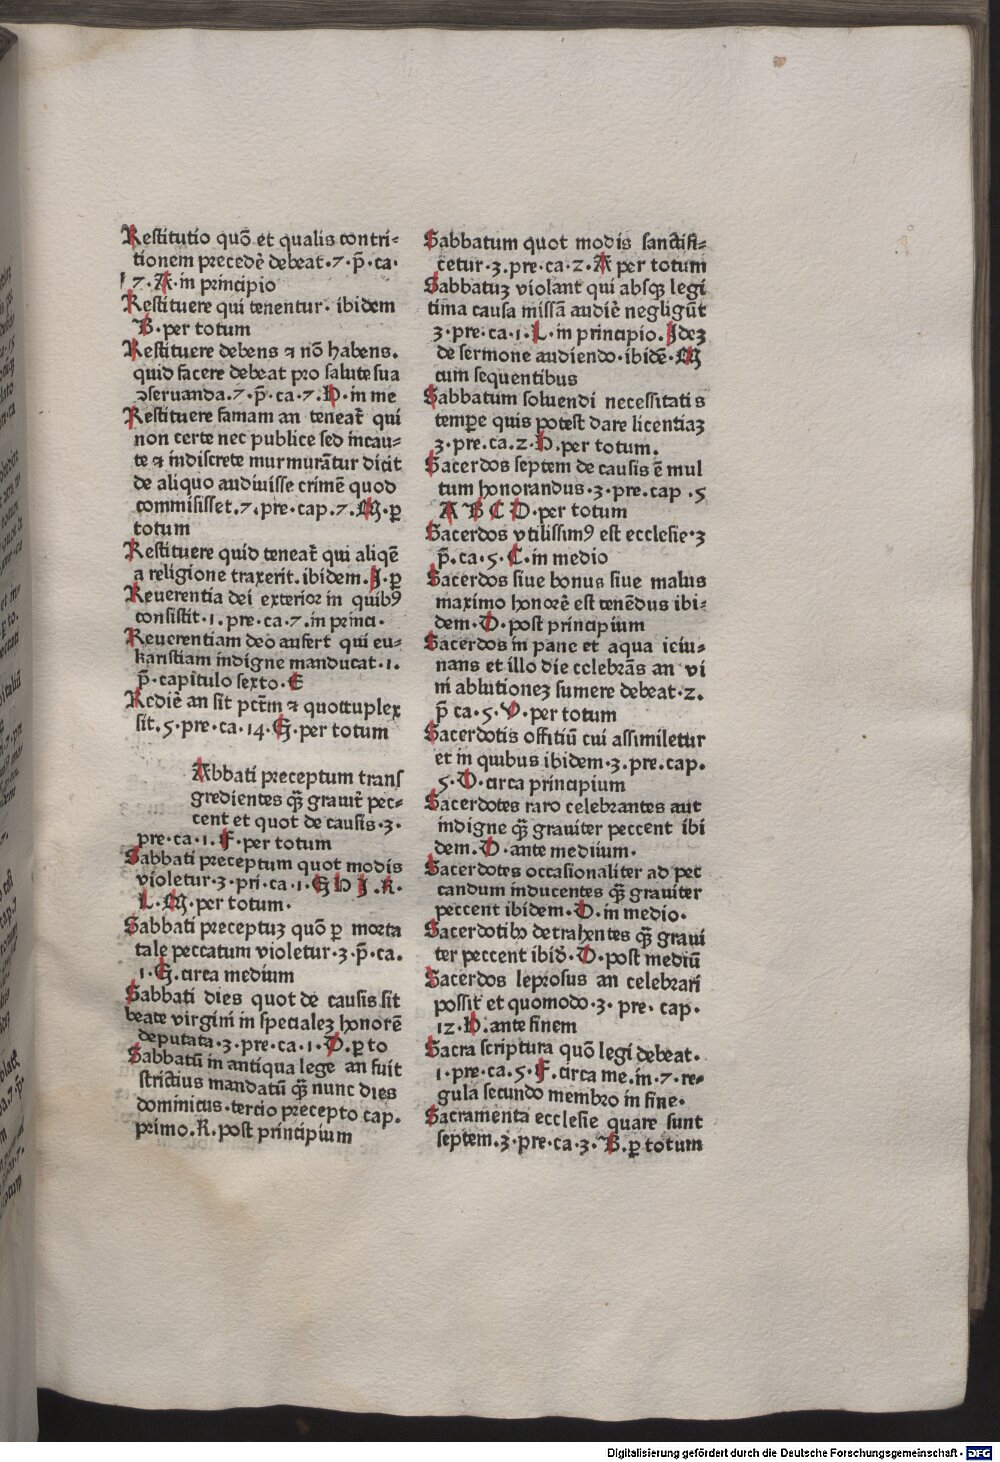 Restitutio quō et qualis contri⸗
tionem precedē debeat.7.p̄.ca.
7.A.in principio
Restituere qui tenentur. ibidem
B.per totum
Restituere debens ⁊ nō habens.
quid facere debeat pro salute sua
ꝯseruanda.7.p̄.ca.7.D.in me
Restituere famam an teneat᷑ qui
non certe nec publice sed incau⸗
te ⁊ indiscrete murmurātur dicit
de aliquo audiuisse crimē quod
commisisset.7.pre.cap.7.M.ꝑ
totum
Restituere quid teneat᷑ qui aliqē
a religione traxerit.ibidem.J.ꝑ
Reuerentia dei exterior in quibꝰ
consistit.1.pre.ca.7.in princi.
Reuerentiam deo aufert qui eu⸗
karistiam indigne manducat.1.
p̄.capitulo sexto.E
Redīe an sit pctm̄ ⁊ quottuplex
sit.5.pre.ca.14.G.per totum
Abbati preceptum transf
gredientes qm̄ grauit᷑ pec⸗
cent et quot de causis.3.
pre.ca.1.F.per totum
Sabbati preceptum quot modis
violetur.3.pri.ca.1.G H J.K.
L.M.per totum.
Sabbati preceptuꝫ quō ꝑ morta
tale peccatum violetur.3.p̄.ca.
1.G.circa medium
Sabbati dies quot de causis sit
beate virgini in specialeꝫ honorē
deputata.3.pre.ca.1.D.ꝑ to
Sabbatū in antiqua lege an fuit
strictius mandatū qm̄ nunc dies
dominicus.tercio precepto cap.
primo.K.post principium
Sabbatum quot modis sanctifi⸗
cetur.3.pre.ca.2.A per totum
Sabbatuꝫ violant qui absqꝫ legi
tima causa missā audīe negligūt
3.pre.ca.1.L.in principio.Jdeꝫ
de sermone audiendo.ibidē.M
cum sequentibus
Sabbatum soluendi necessitatis
tempe quis potest dare licentiaꝫ
3.pre.ca.2.D.per totum.
Sacerdos septem de causis ē mul
tum honorandus.3.pre.cap.5
A B C D.per totum
Sacerdos vtilissimꝰ est ecclesie.3
p̄.ca.5.C.in medio
Sacerdos siue bonus siue malus
maximo honorē est tenēdus ibi⸗
dem.D.post principium
Sacerdos in pane et aqua ieiu⸗
nans et illo die celebrās an vi
ni ablutioneꝫ sumere debeat.2.
p̄ ca.5.V.per totum
Sacerdotis offitiū cui assimiletur
et in quibus ibidem.3.pre.cap.
5.D.circa principium
Sacerdotes raro celebrantes aut
indigne qm̄ grauiter peccent ibi
dem.D.ante mediium.
Sacerdotes occasionaliter ad pec
candum inducentes qm̄ grauiter
peccent ibidem.D.in medio.
Sacerdotibꝰ detrahentes qm̄ graui
ter peccent ibid̄.D.post mediū
Sacerdos leprosus an celebrari
possit et quomodo.3. pre. cap.
12.D.ante finem
Sacra scriptura quō legi debeat.
1.pre.ca.5.F.circa me.in.7.re⸗
gula secundo membro in fine.
Sacramenta ecclesie quare sunt
septem.3.pre.ca.3.B.ꝑ totum
Digitalisierung gefördert durch die Deutsche Forschungsgemeinschaft - DFG